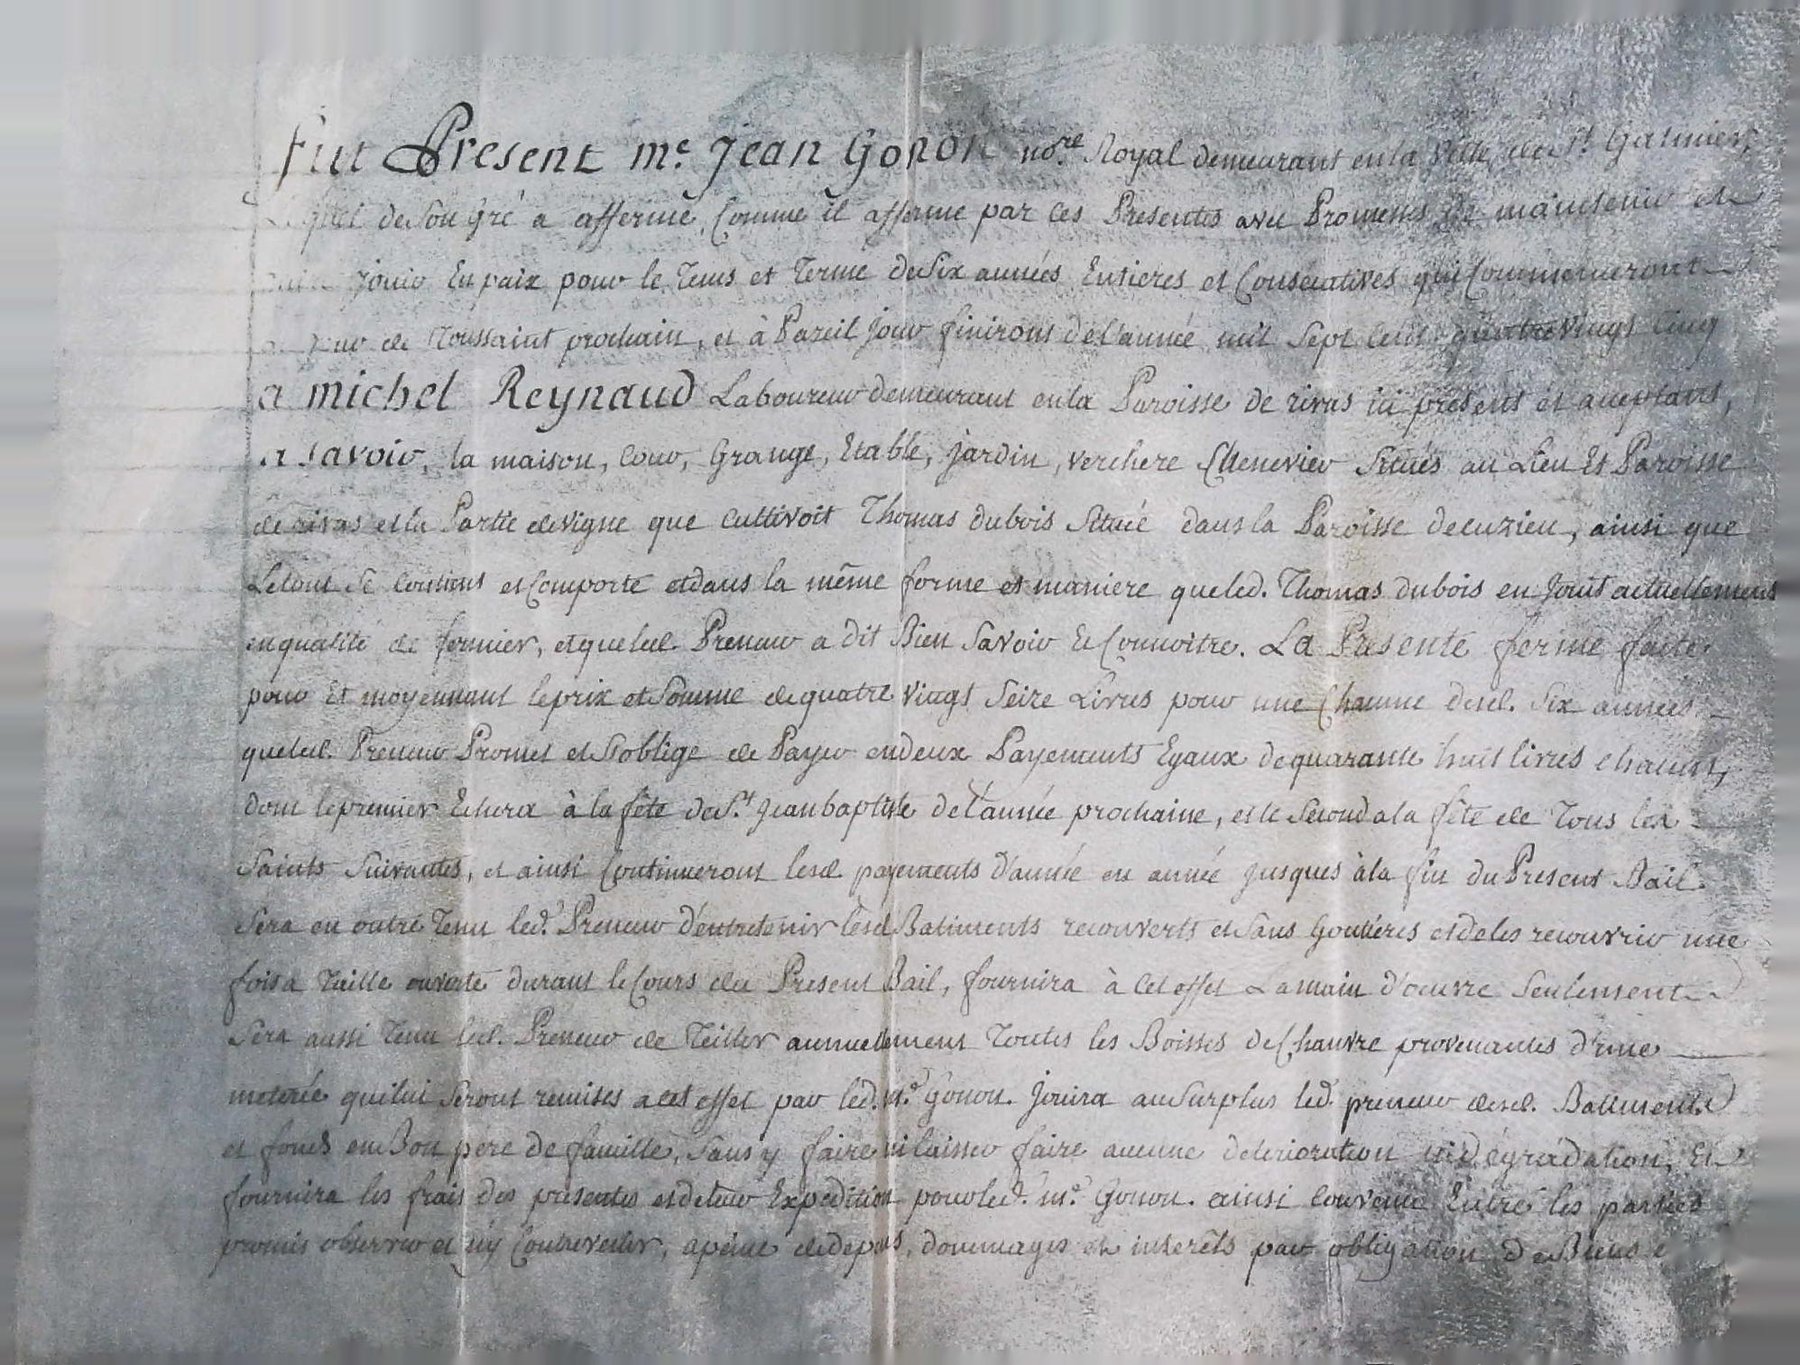 Fut Present me. Jean Gonon nore. Royal demeurant en la ville de St. Galmier,
lequel de Son Gré a affermé, Comme il afferme par ces Presentes avec Promesses de maintenir et
jouir En paix pour le Tems et Terme de Six années Entieres et Consécutives qui Commenceront
jour de Toussaint prochain, et à Pareil jour finiront de l'année mil Sept Cent quatre Vingt Cinq
a michel Reynaud Laboureur demeurant en la Paroisse de rivas ici présent et acceptant,
a savoir, la maison, Cour, Grange, Etable, jardin, verchere Chenevier Situés au Lieu Et Paroisse
de rivas et la Partie de vigne que Cultivoit Thomas dubois Située dans la Paroisse de cuzieu, ainsi que
Le tout Se Contient et Comporte et dans la même forme et maniere que led. Thomas dubois en Jouit actuellement
en qualité de fermier, et que led. Preneur a dit Bien Savoir Et Connoitre. La Presente ferme faite
pour Et moyennant le prix et Somme de quatre vingt Seize Livres pour une Chacune desd. Six années
que led. Preneur Promet et S'oblige de Payer en deux Payements Egaux de quarante huit livres chacun,
dont le premier Echera à la fête de St. Jean baptiste de l'année prochaine, et le Second a la fête de Tous les
Saints Suivantes, et ainsi Continueront lesd payements d'année en année jusques à la fin du Present Bail.
Sera en outre Tenu led. Preneur d'entretenir lesd Batiments recouverts et Sans Goutières et de les recouvrir une
fois a Taille ouverte durant le Cours du Present Bail, fournira à Cet effet La main d'oeuvre Seulement
Sera aussi Tenu led. Preneur de Teiller annuellement Toutes les Boisses de Chanvre provenantes d'une
meterée qui lui Seront remises a cet effet par led. me. Gonon. Jouira au Surplus led. preneur desd. Batiments
et fonds en Bon père de famille, Sans y faire ni laisser faire aucune deterioration ni dégradation, Et
fournira les frais des presentes et de leur Expedition pour led. me. Gonon. ainsi Convenu Entre les parties
promis observer et n'y Contrevenir, a peine de depens, dommages et interêts par obligation de Biens